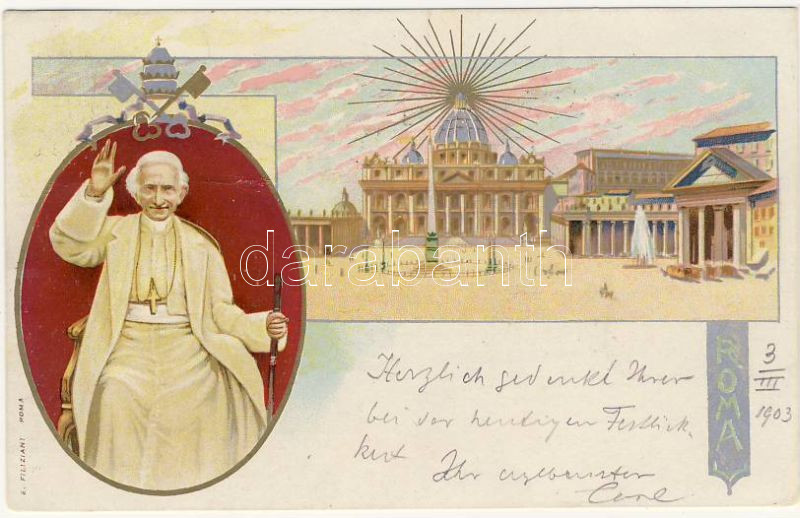 darabanth
ROMA
3
III
1903
Herzlich gedenkt Ihrer
bei der heutigen Festlich-
keit
Ihr ergebenster
E. FILIZIANI ROMA